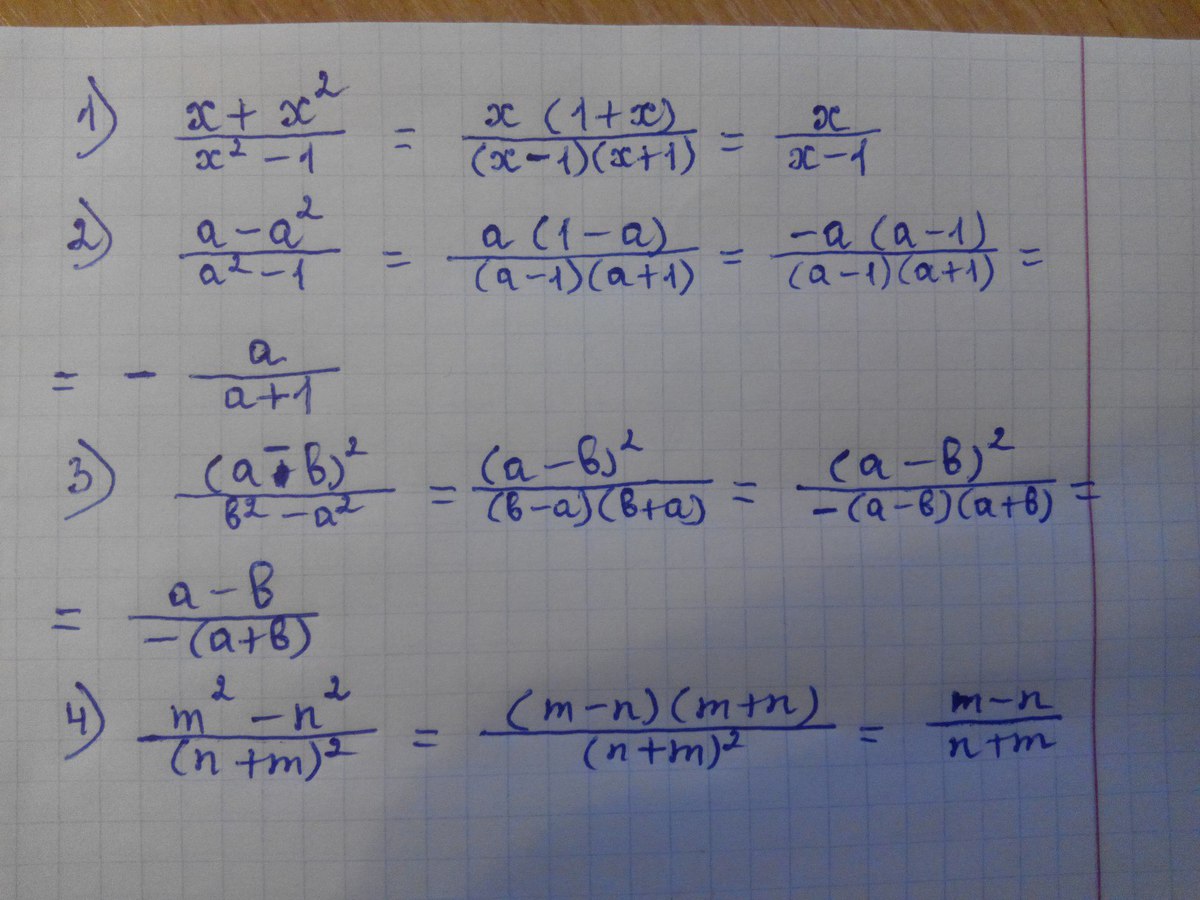 1) (x + x²)/(x² - 1) = (x (1 + x))/((x - 1)(x + 1)) = x/(x - 1)
2) (a - a²)/(a² - 1) = (a (1 - a))/((a - 1)(a + 1)) = (-a (a - 1))/((a - 1)(a + 1)) =
= - a/(a + 1)
3) (a - b)²/(b² - a²) = (a - b)²/((b - a)(b + a)) = (a - b)²/(-(a - b)(a + b)) =
= (a - b)/(-(a + b))
4) (m² - n²)/(n + m)² = ((m - n)(m + n))/(n + m)² = (m - n)/(n + m)